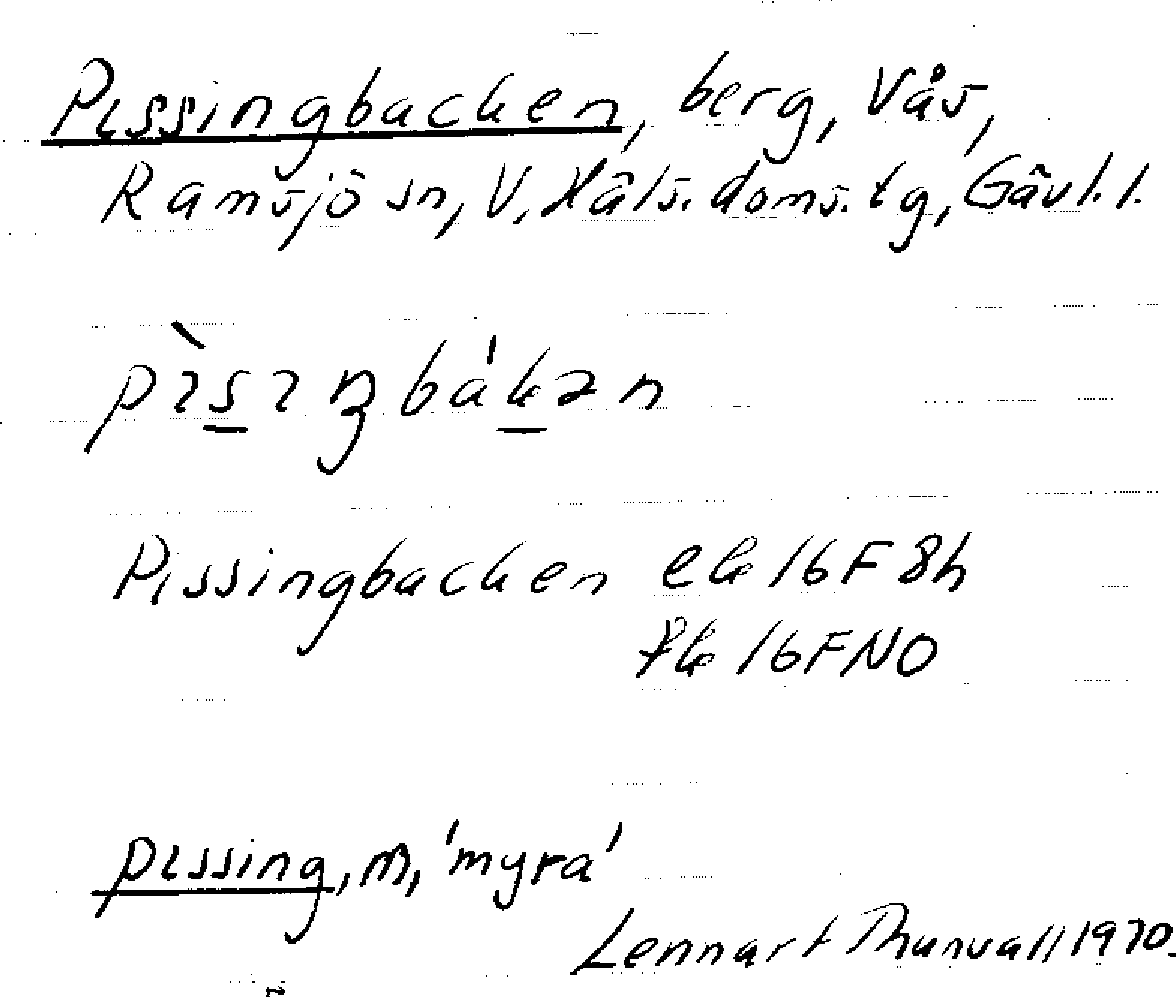 Pissingbacken, berg, Vås,
Ramsjö sn, V. Häls. doms. tg, Gävl. l.
pìsıŋbákən
Pissingbacken ek 16F8h
fk 16FNO
pissing, m, 'myra'
Lennart Thunvall 1970.